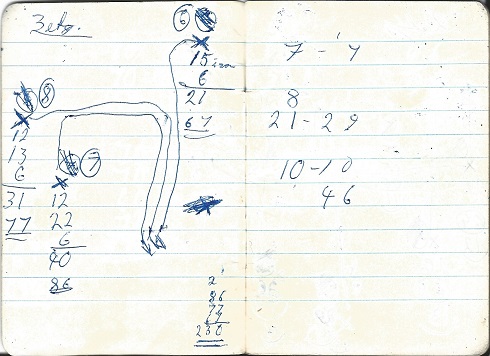 ⑧
12
13
6
31
77
⑦
12
22
6
40
86
⑥
15
6
21
67
2'
86
77
67
230
7 - 4
8
21 - 29
10 - 10
46